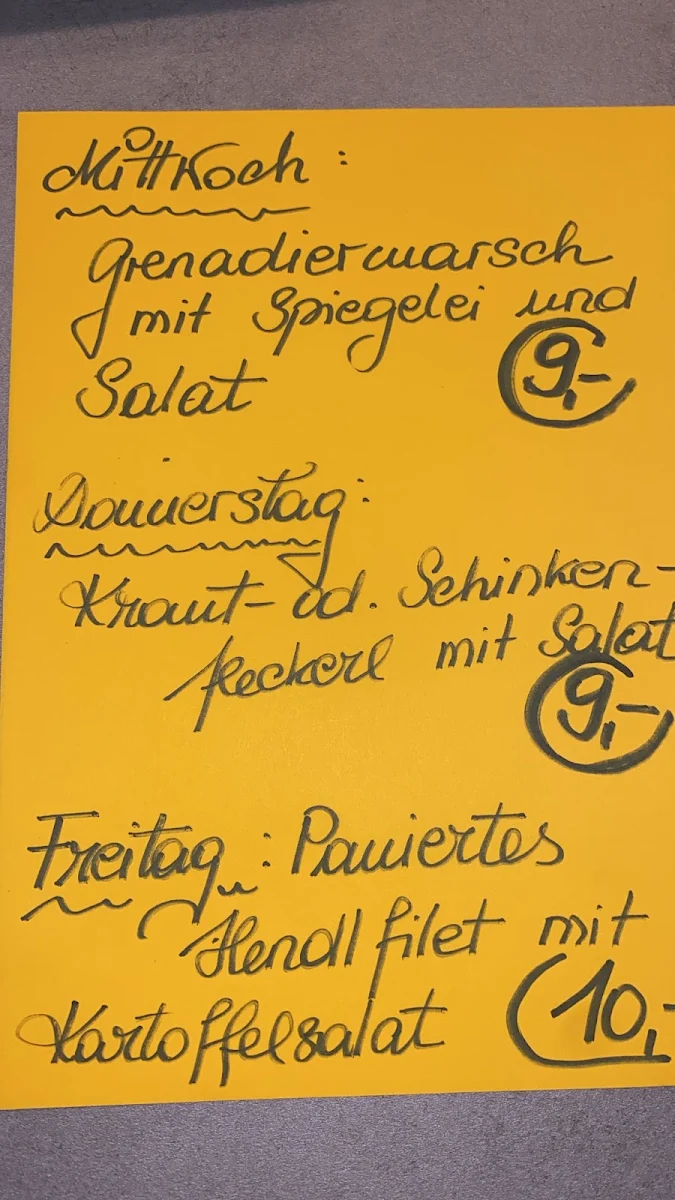 Mittwoch:
Grenadiermarsch
mit Spiegelei und
Salat 9,-
Donnerstag:
Kraut- od. Schinken-
fleckerl mit Salat
9,-
Freitag: Paniertes
Hendlfilet mit
Kartoffelsalat 10,-